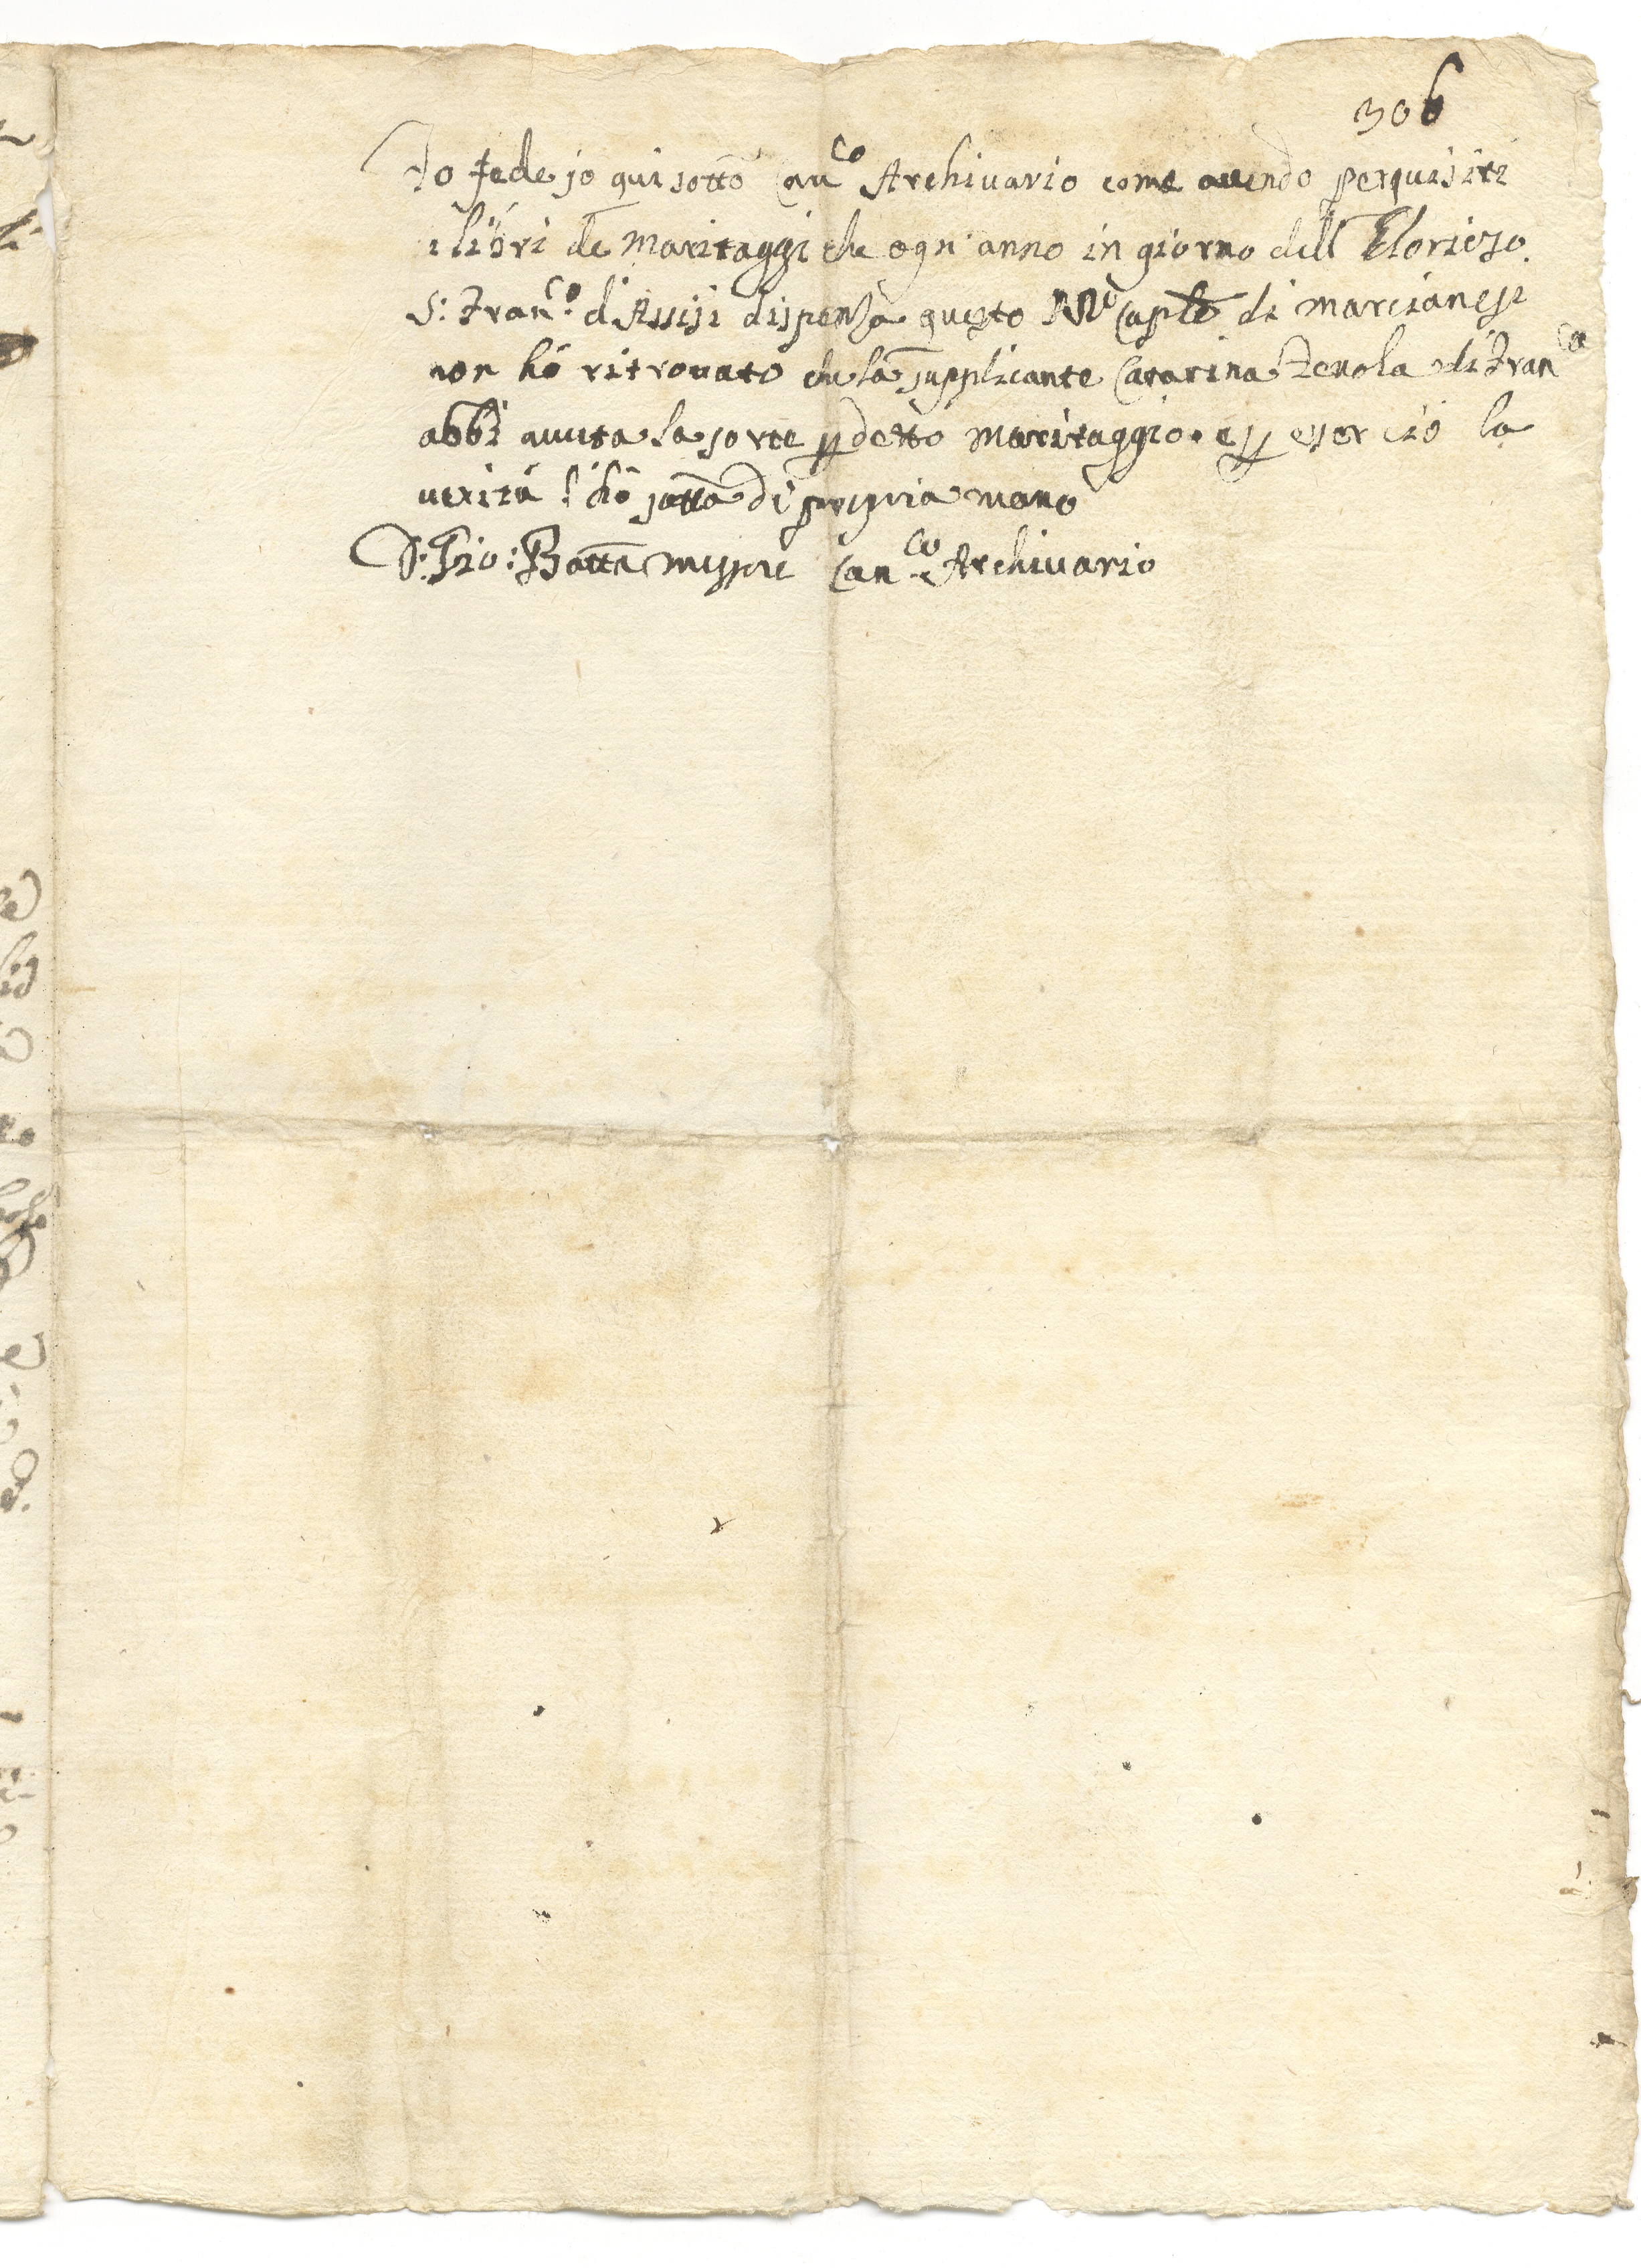 306
Fo fede io qui sotto Can.co Archivario come avendo perquisiti
i libri de Maritaggi che ogn'anno in giorno dell Glorioso
S: Fran.co d'Assisi dispenza questo di Marcianesi
non hò ritrovato che la supplicante Catarina Zenola di Fran.co
abbi avuta la sorte per detto Maritaggio e per esser ciò la
verità l'hò sotta di propria mano
D: Gio: Batta Messore Can.co Archivario